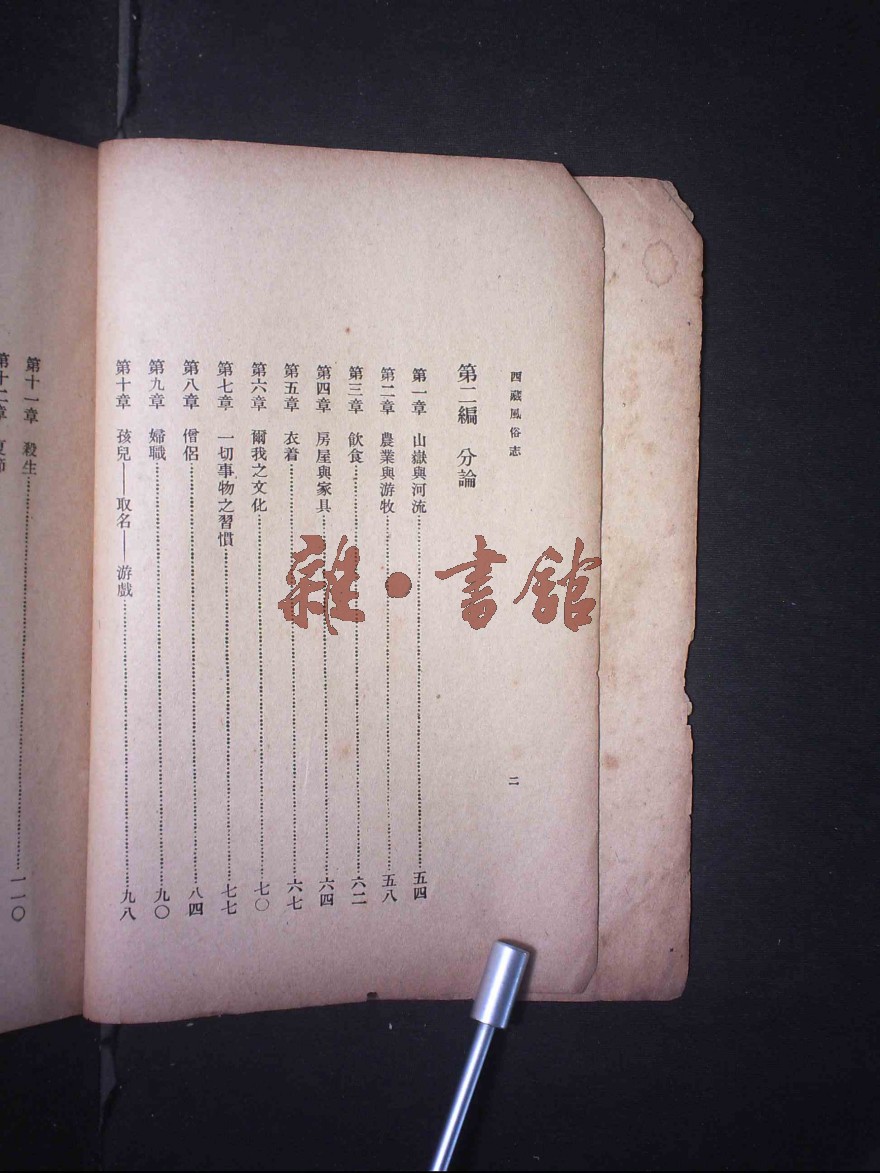 西藏風俗志
二
第二編　分論
第一章　山嶽與河流……五四
第二章　農業與游牧……五八
第三章　飲食……六二
第四章　房屋與家具……六四
第五章　衣着……六七
第六章　爾我之文化……七〇
第七章　一切事物之習慣……七七
第八章　僧侶……八四
第九章　婦職……九〇
第十章　孩兒——取名——游戲……九八
第十一章　殺生……一一〇
第十二章
雜·書館